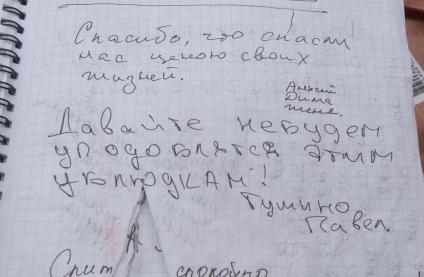 Спасибо, что спасли
нас ценою своих
жизней.
Алексей
Дима
Женя.
Давайте небудем
уподоблятся этим
ублюдкам!
Тушино
Павел
А.
Спит спокойно